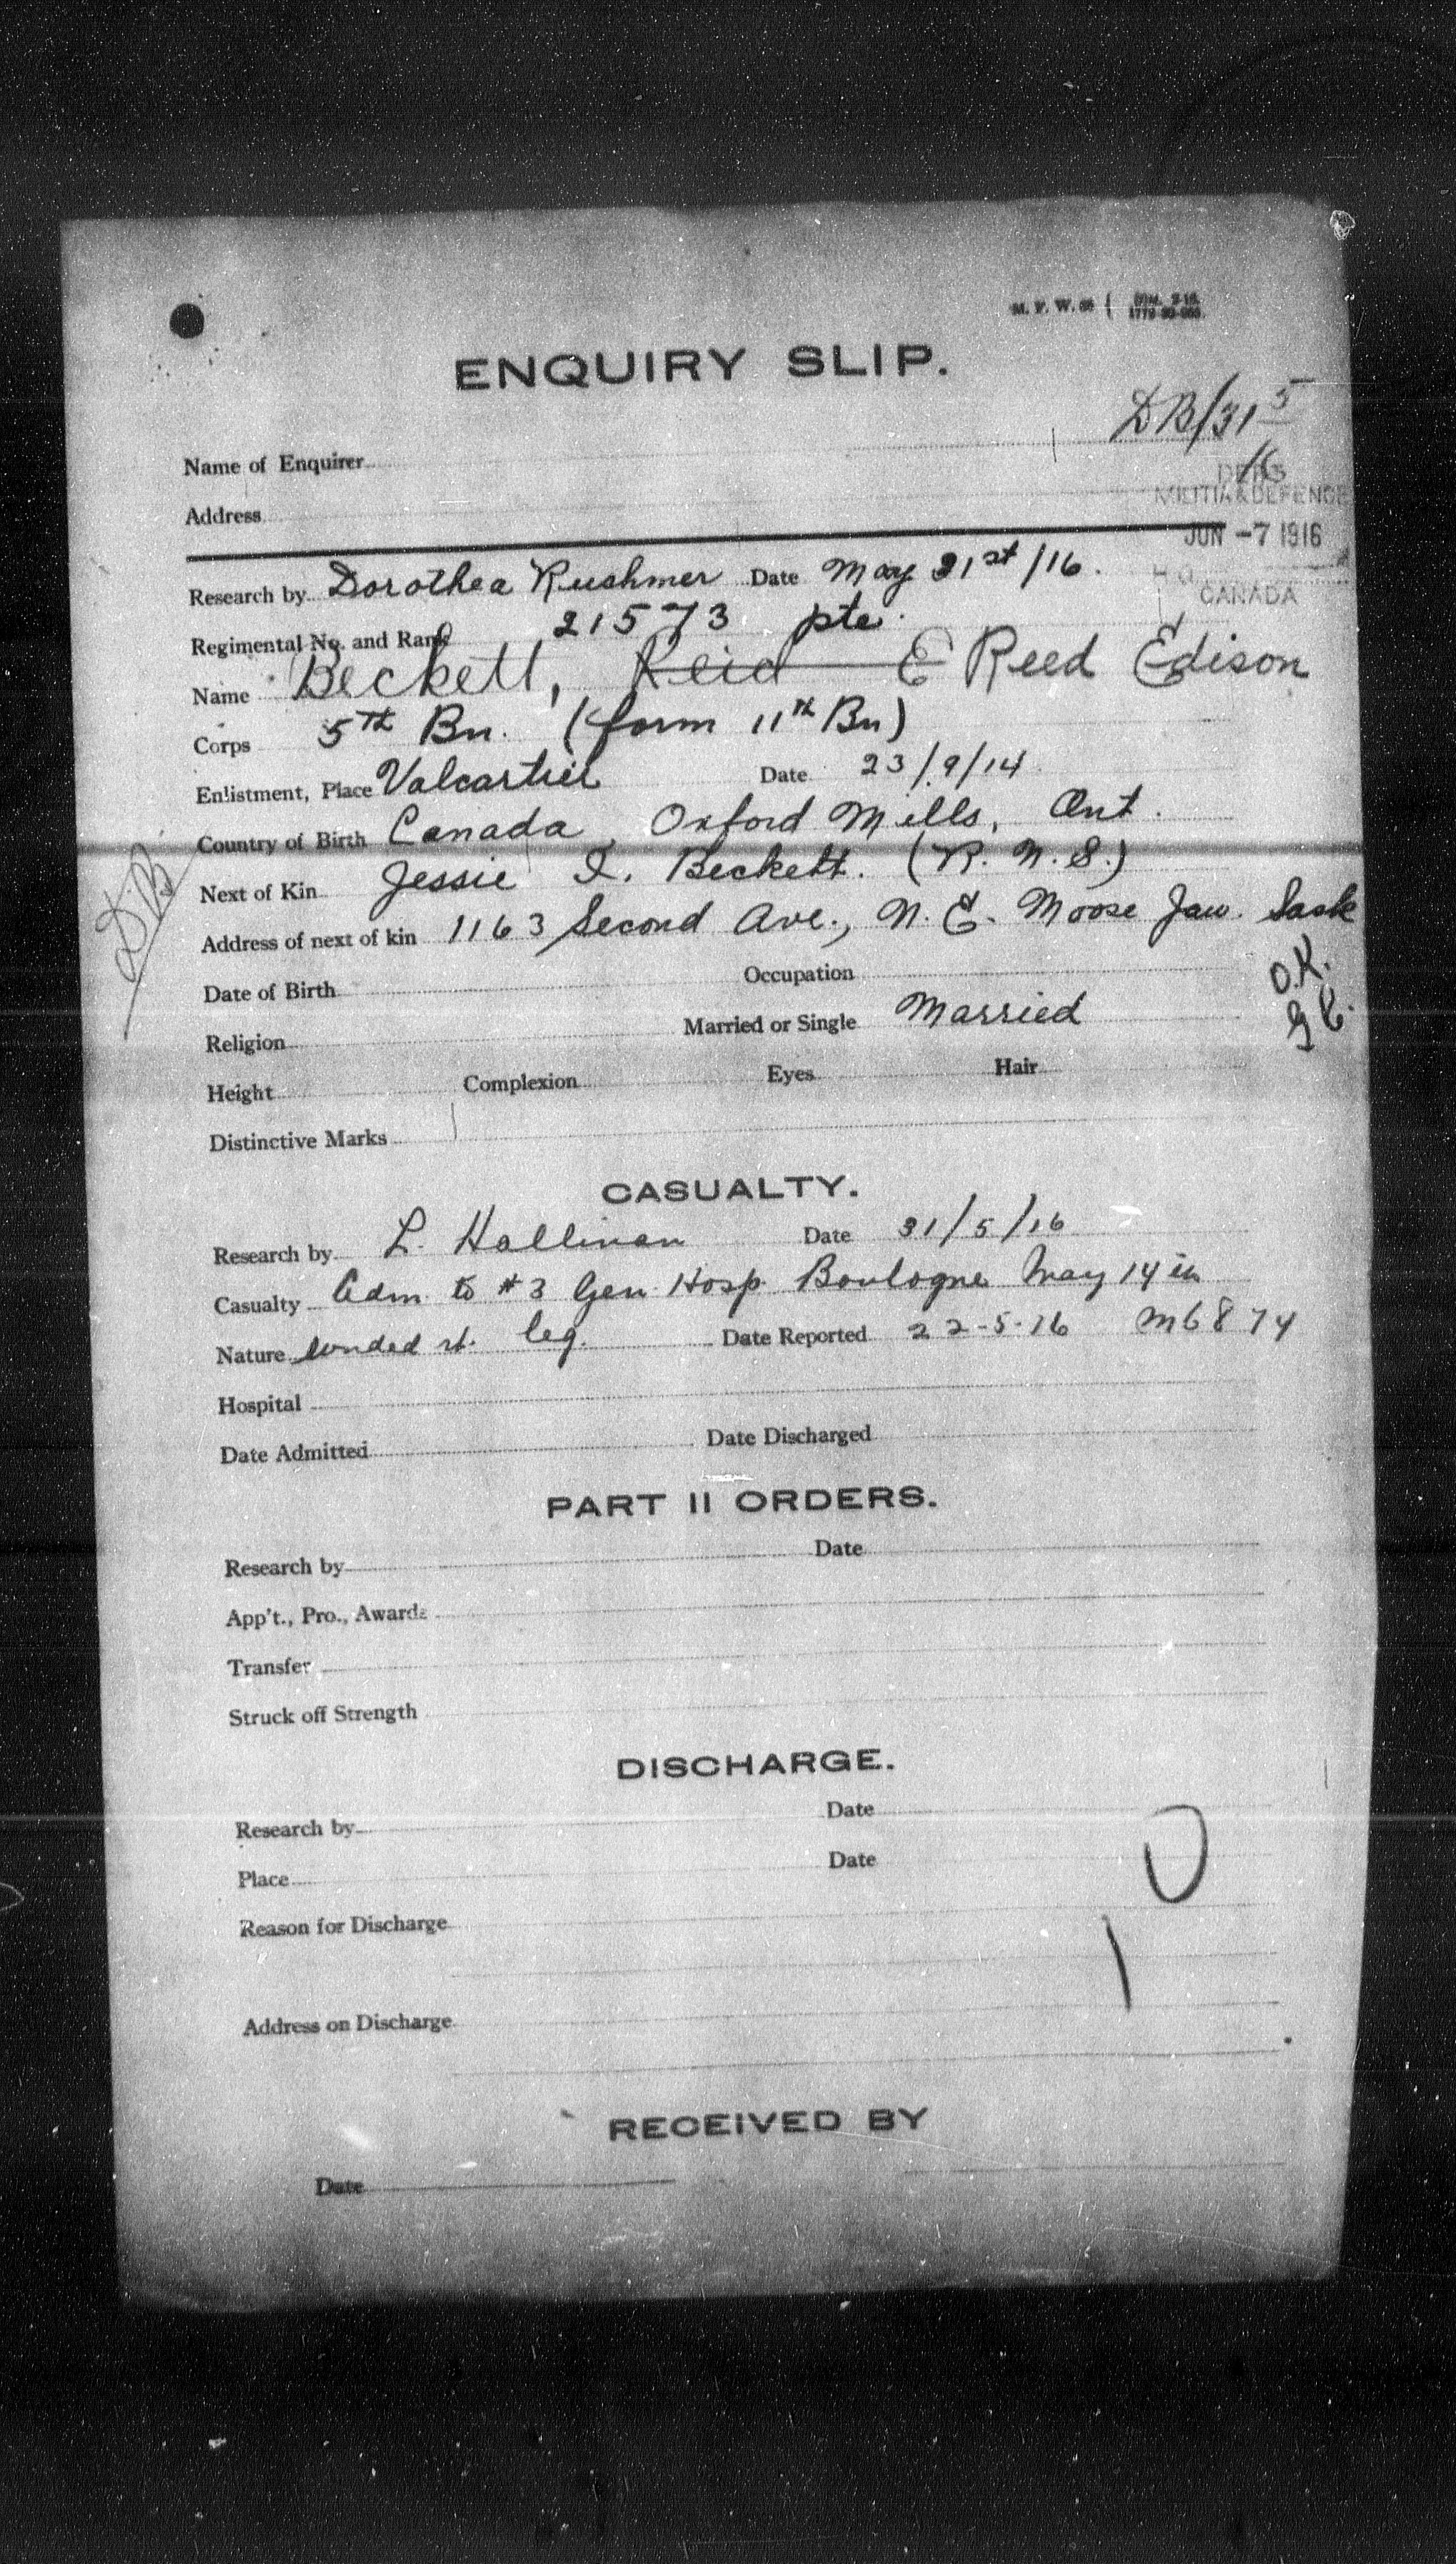 M. F. W.
ENQUIRY SLIP.
DB/31 5
16
Name of Enquirer
MILITIA & DEFENCE
Address
JUN -7 1916
H.Q.
CANADA
Research by Dorothea Rushmer Date May 31st/16.
Regimental No. and Rank 21573 pte.
Name Beckett, Reid E Reed Edison
Corps 5th Bn. (form 11th Bn)
Enlistment, Place Valcartier Date 23/9/14
Country of Birth Canada, Oxford Mills, Ont.
Next of Kin Jessie I. Beckett. (R. N. S.)
DB
Address of next of kin 1163 Second Ave., N. E. Moose Jaw. Sask
O.K.
Date of Birth Occupation
Religion Married or Single Married
Height Complexion Eyes Hair
Distinctive Marks
CASUALTY.
Research by L. Hallinan Date 31/5/16
Casualty Adm to #3 Gen Hosp Boulogne May 14th
Nature wnded rt. leg. Date Reported 22-5-16 M6874
Hospital
Date Admitted Date Discharged
PART II ORDERS.
Research by Date
App't., Pro., Awards
Transfer
Struck off Strength
DISCHARGE.
Research by Date
Place Date
Reason for Discharge
Address on Discharge
RECEIVED BY
Date